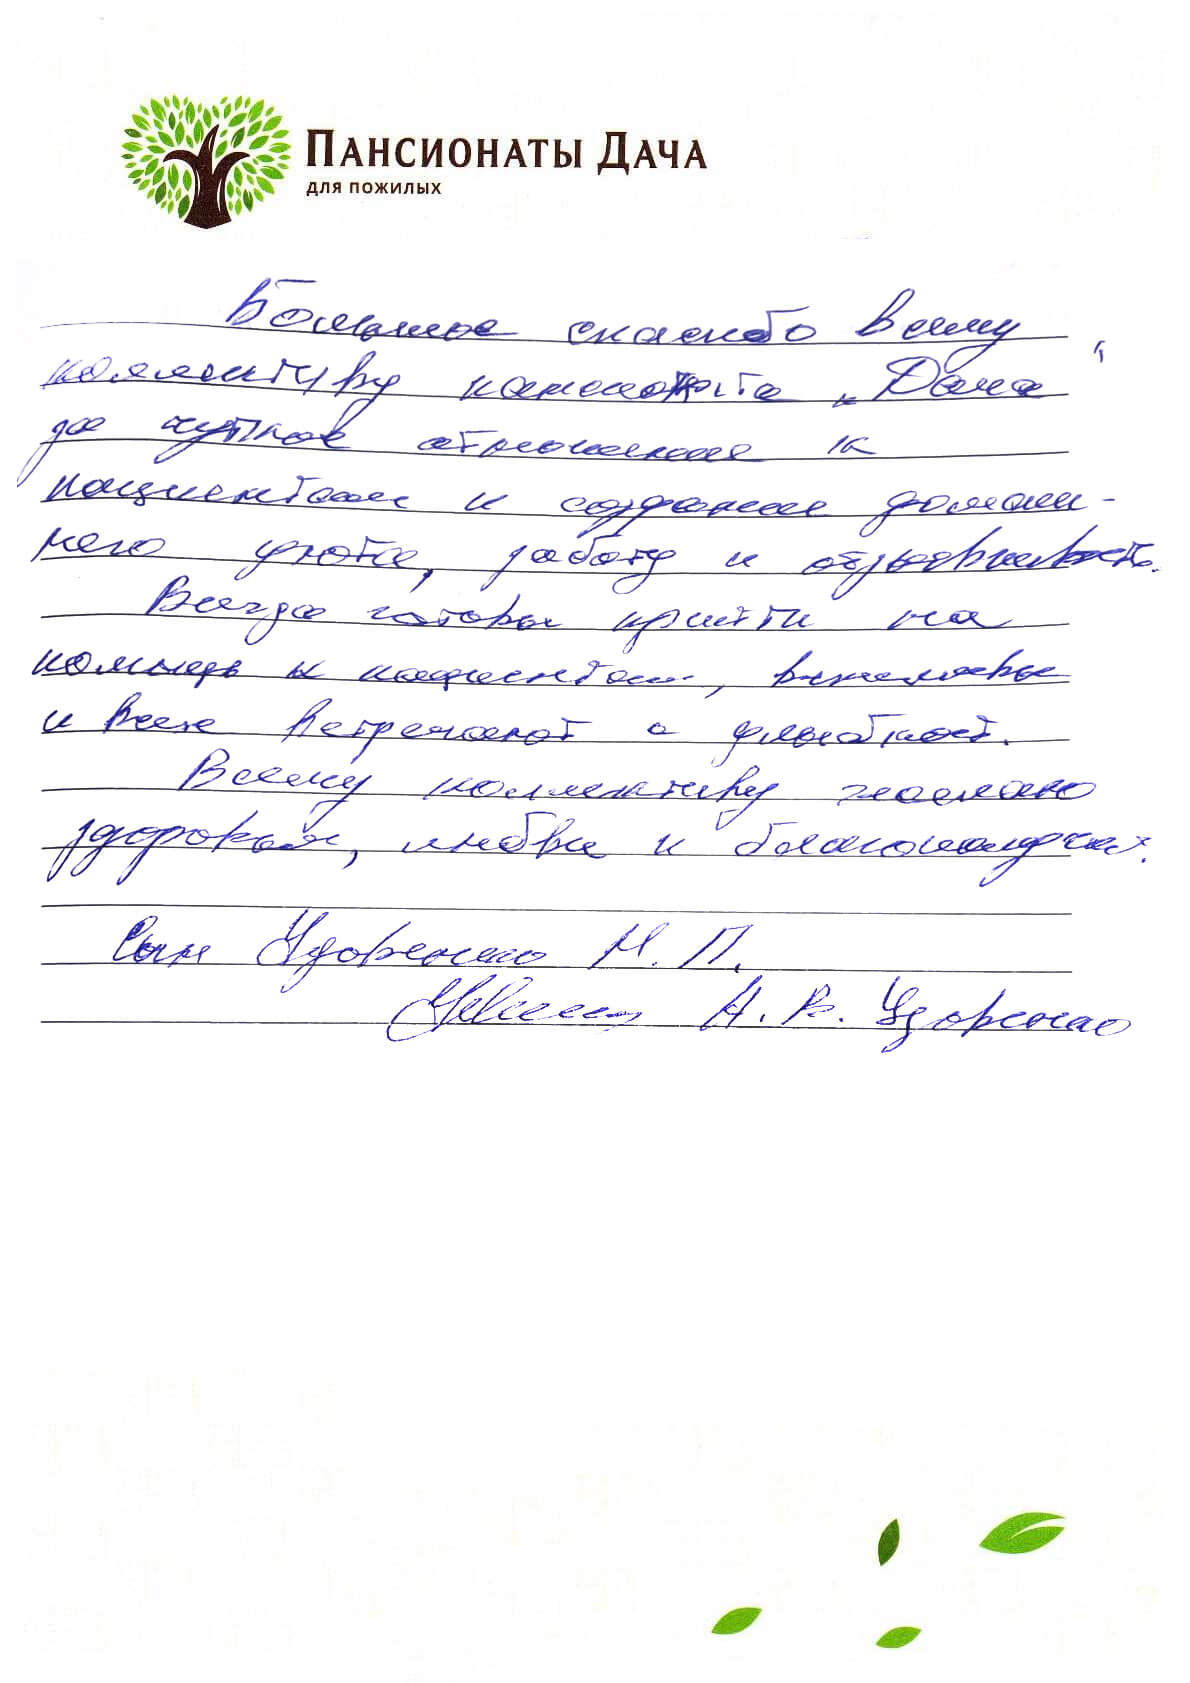 ПАНСИОНАТЫ ДАЧА
ДЛЯ ПОЖИЛЫХ
Большое спасибо всему
коллективу пансионата „Дача“
за чуткое отношение к
пациентам и создание домаш-
него уюта, заботу и отзывчивость.
Всегда готовы прийти на
помощь к пациентам, вежливы
и всех встречают с улыбкой.
Всему коллективу желаю
здоровья, любви и благополучия.
Сын Удовенко М. П.
А. В. Удовенко